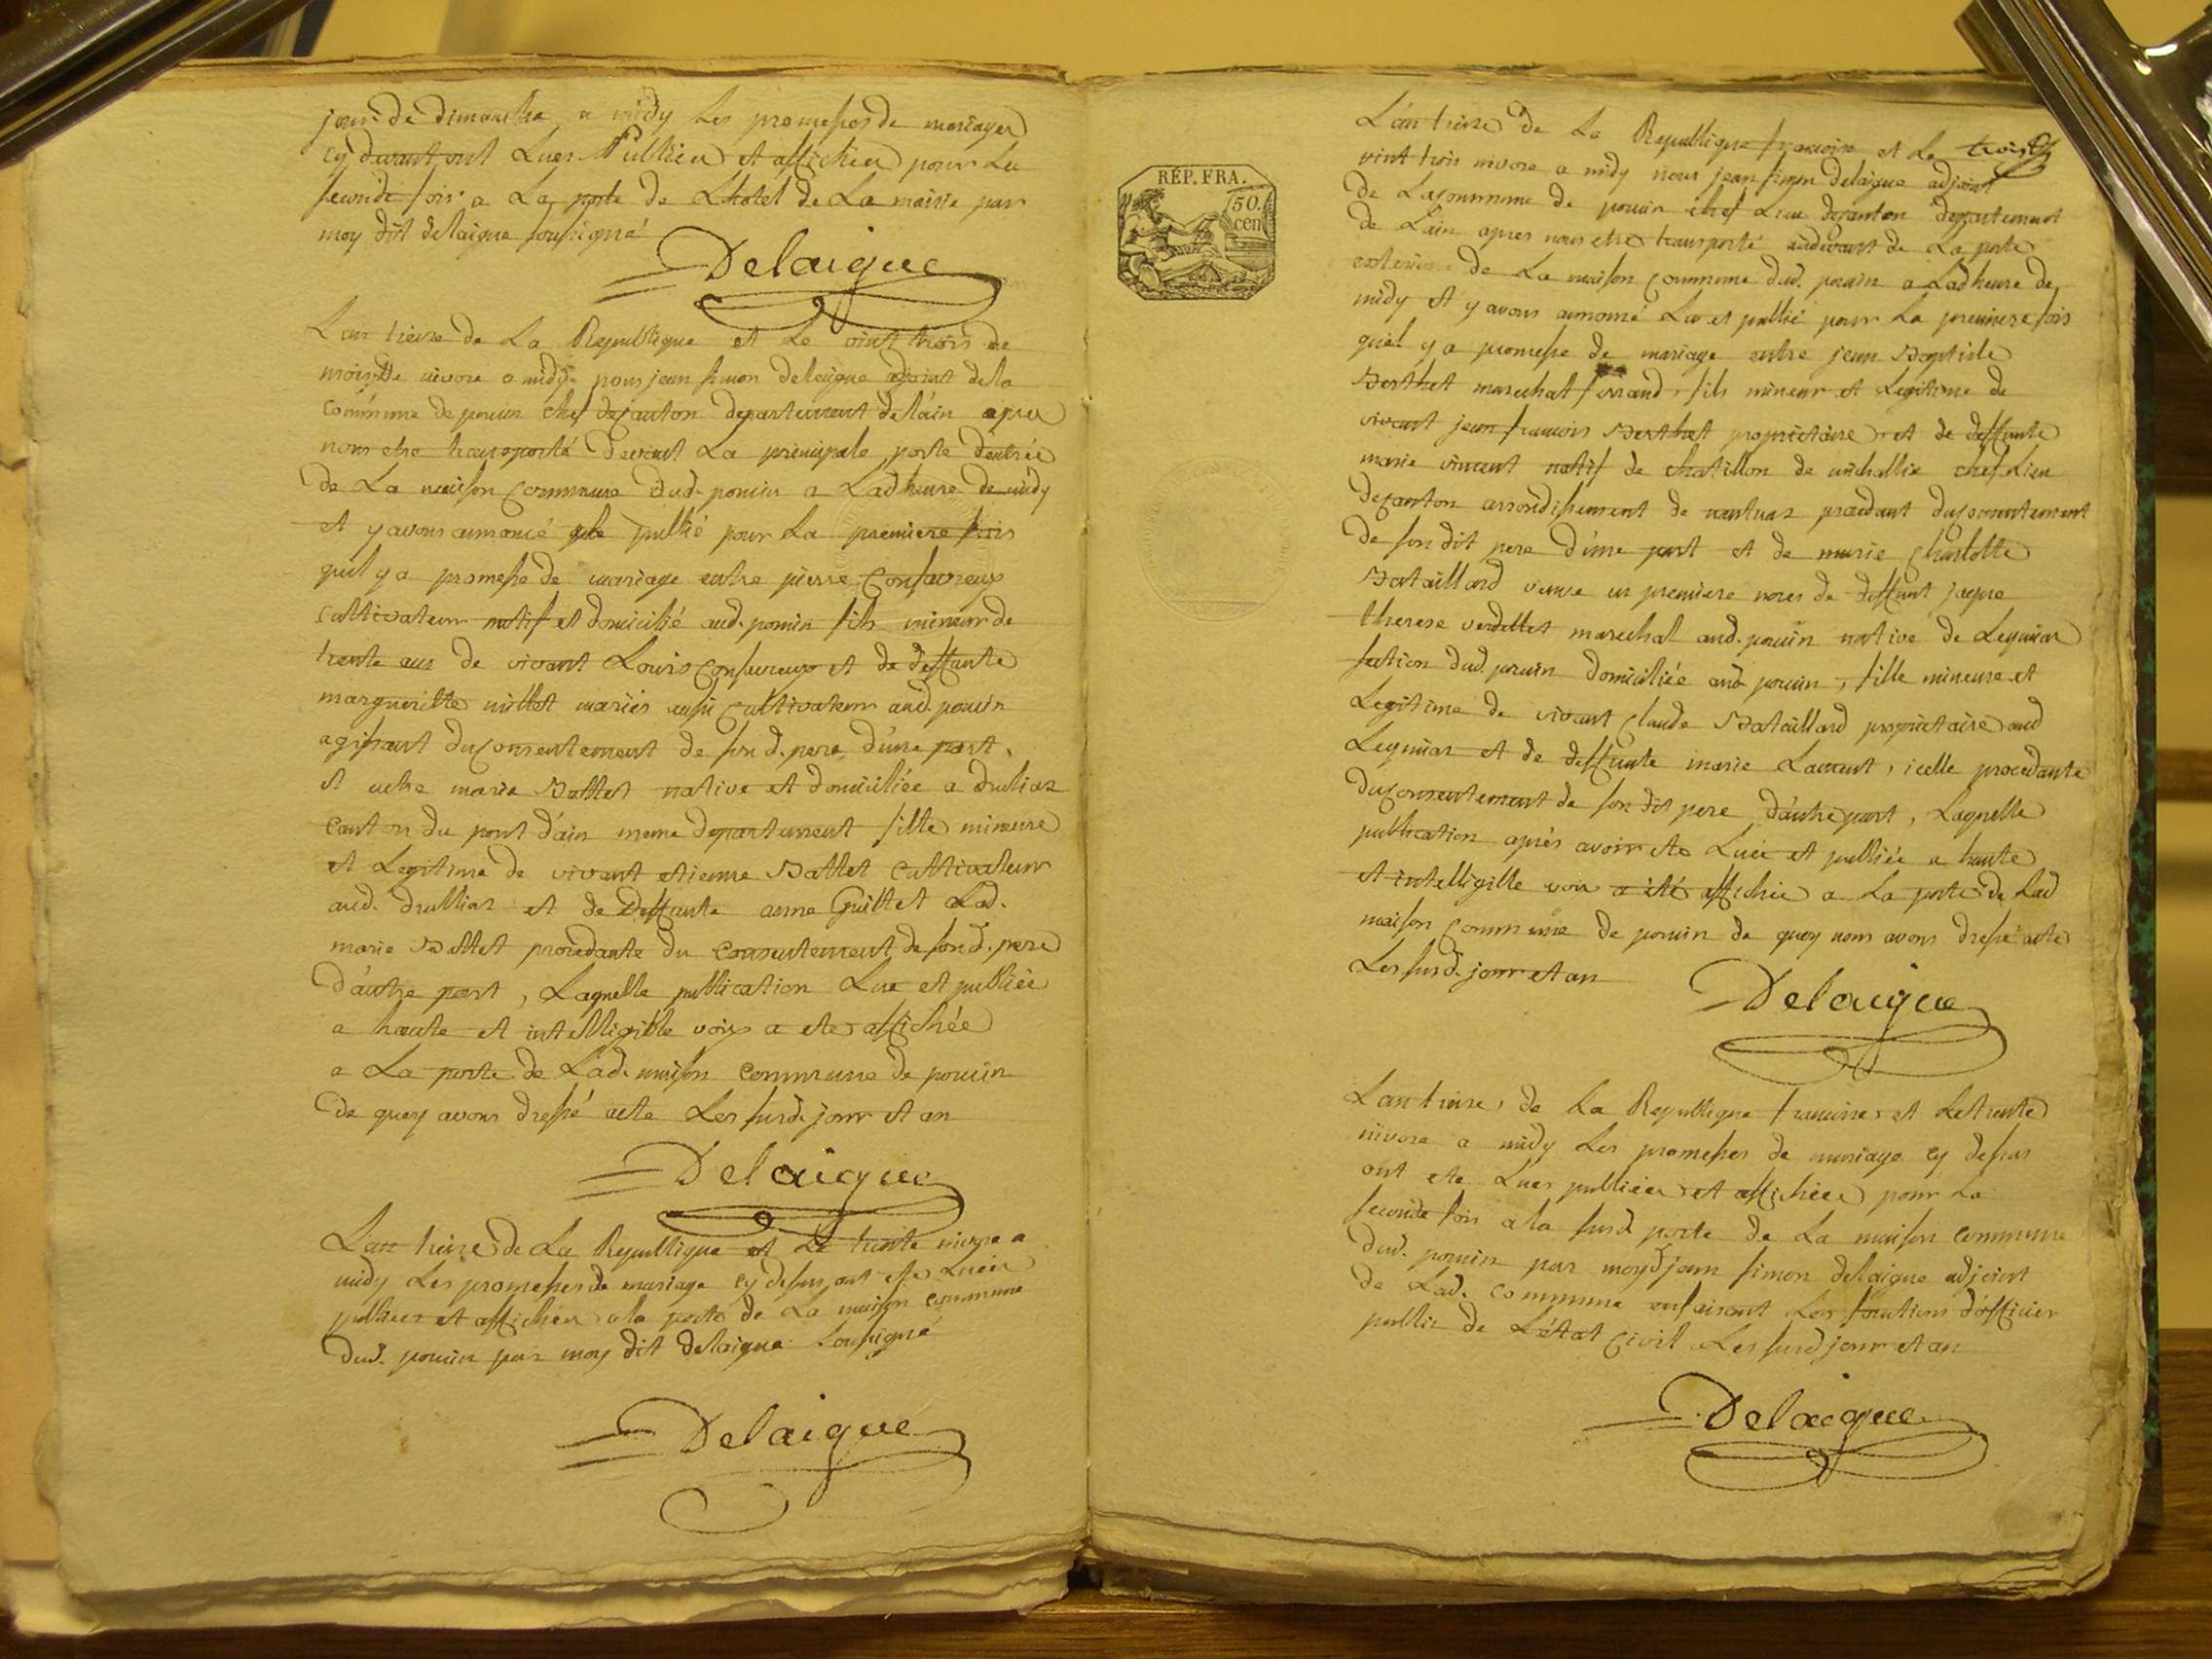 jour de dimanche a midy les promesses de mariages
cy devant ont Lues Publiées et affichées pour La
seconde fois a La porte de Lhotel de La mairie par
moy dit delaigue soussigné
Delaigue
Lan treize de La Republique et Le vint trois de
mois de nivose a midy nous jean simon delaigue adjoint de la
commune de poncin chef de canton departement de lain apres
nous etre transporté devant La principale porte dentrée
de La maison commune dud. poncin a Ladheure de midy
et y avons annoncé publié pour La premiere fois
quil y a promesse de mariage entre pierre Confavreux
cultivateur natif et domicilié aud. poncin fils mineur de
trente ans de vivant Louis confavreux et de deffunte
margueritte millet mariés aussi cultivateur aud. poncin
agissant du consentement de son d. pere dune part,
et entre marie Battet native et domiciliée a drulias
canton du pont dain meme departement fille mineure
et Legitime de vivant etienne Battet cultivateur
aud. drullias et de deffunte anne Guillet Lad.
marie Battet procedante du consentement de son d. pere
dautre part, Laquelle publication Lue et publiée
a haute et intelligible voix a ete affichée
a La porte de Lad. maison commune de poncin
de quoy avons dressé acte Les susd. jour et an
Delaigue
Lan treize de La Republique et Le trente nivose a
midy Les promesses de mariage cy dessus ont ete Luees
publiees et affichées a la porte de La maison commune
dud. poncin par moy dit delaigue soussigné
Delaigue
RÉP. FRA.
50.
cen
Lan treize de La Republique francoise et Le trois
vint trois nivose a midy nous jean simon delaigue adjoint
de La commune de poncin chef Lieu de canton departement
de Lain apres nous etre transporté audevant de La porte
exterieure de La maison commune dud. poncin a Ladheure de
midy et y avons annoncé Lu et publié pour La premiere fois
quil y a promesse de mariage entre jean Baptiste
Berthet marechal ferrand, fils mineur et Legitime de
vivant jean francois Berthet proprietaire et de deffunte
marie vincent natif de chatillon de michallie chef Lieu
de canton arrondissement de nantuas procedant du consentement
de son dit pere dune part et de marie charlotte
Bataillard veuve en premiere noces de deffunt jaque
therese verdellet marechal aud. poncin native de Leymiar
section dud. poncin domiciliée aud poncin, fille mineure et
Legitime de vivant claude Bataillard proprietaire aud
Leymiar et de deffunte marie Laurent, icelle procedante
du consentement de son dit pere dautre part, Laquelle
publication aprés avoir ete Luee et publiée a haute
et intelligible voix a été affichée a La porte de Lad
maison commune de poncin de quoy nous avons dressé acte
Les susd. jour et an
Delaigue
Lan treize de La Republique francoise et Le trente
nivose a midy Les promesses de mariage cy dessus
ont ete Lues publiées et affichées pour La
seconde fois a la susd. porte de La maison commune
dud. poncin par moyd jean simon delaigue adjoint
de Lad. commune enfaisant Les fonctions dofficier
public de Létat civil Les susd jour et an
Delaigue